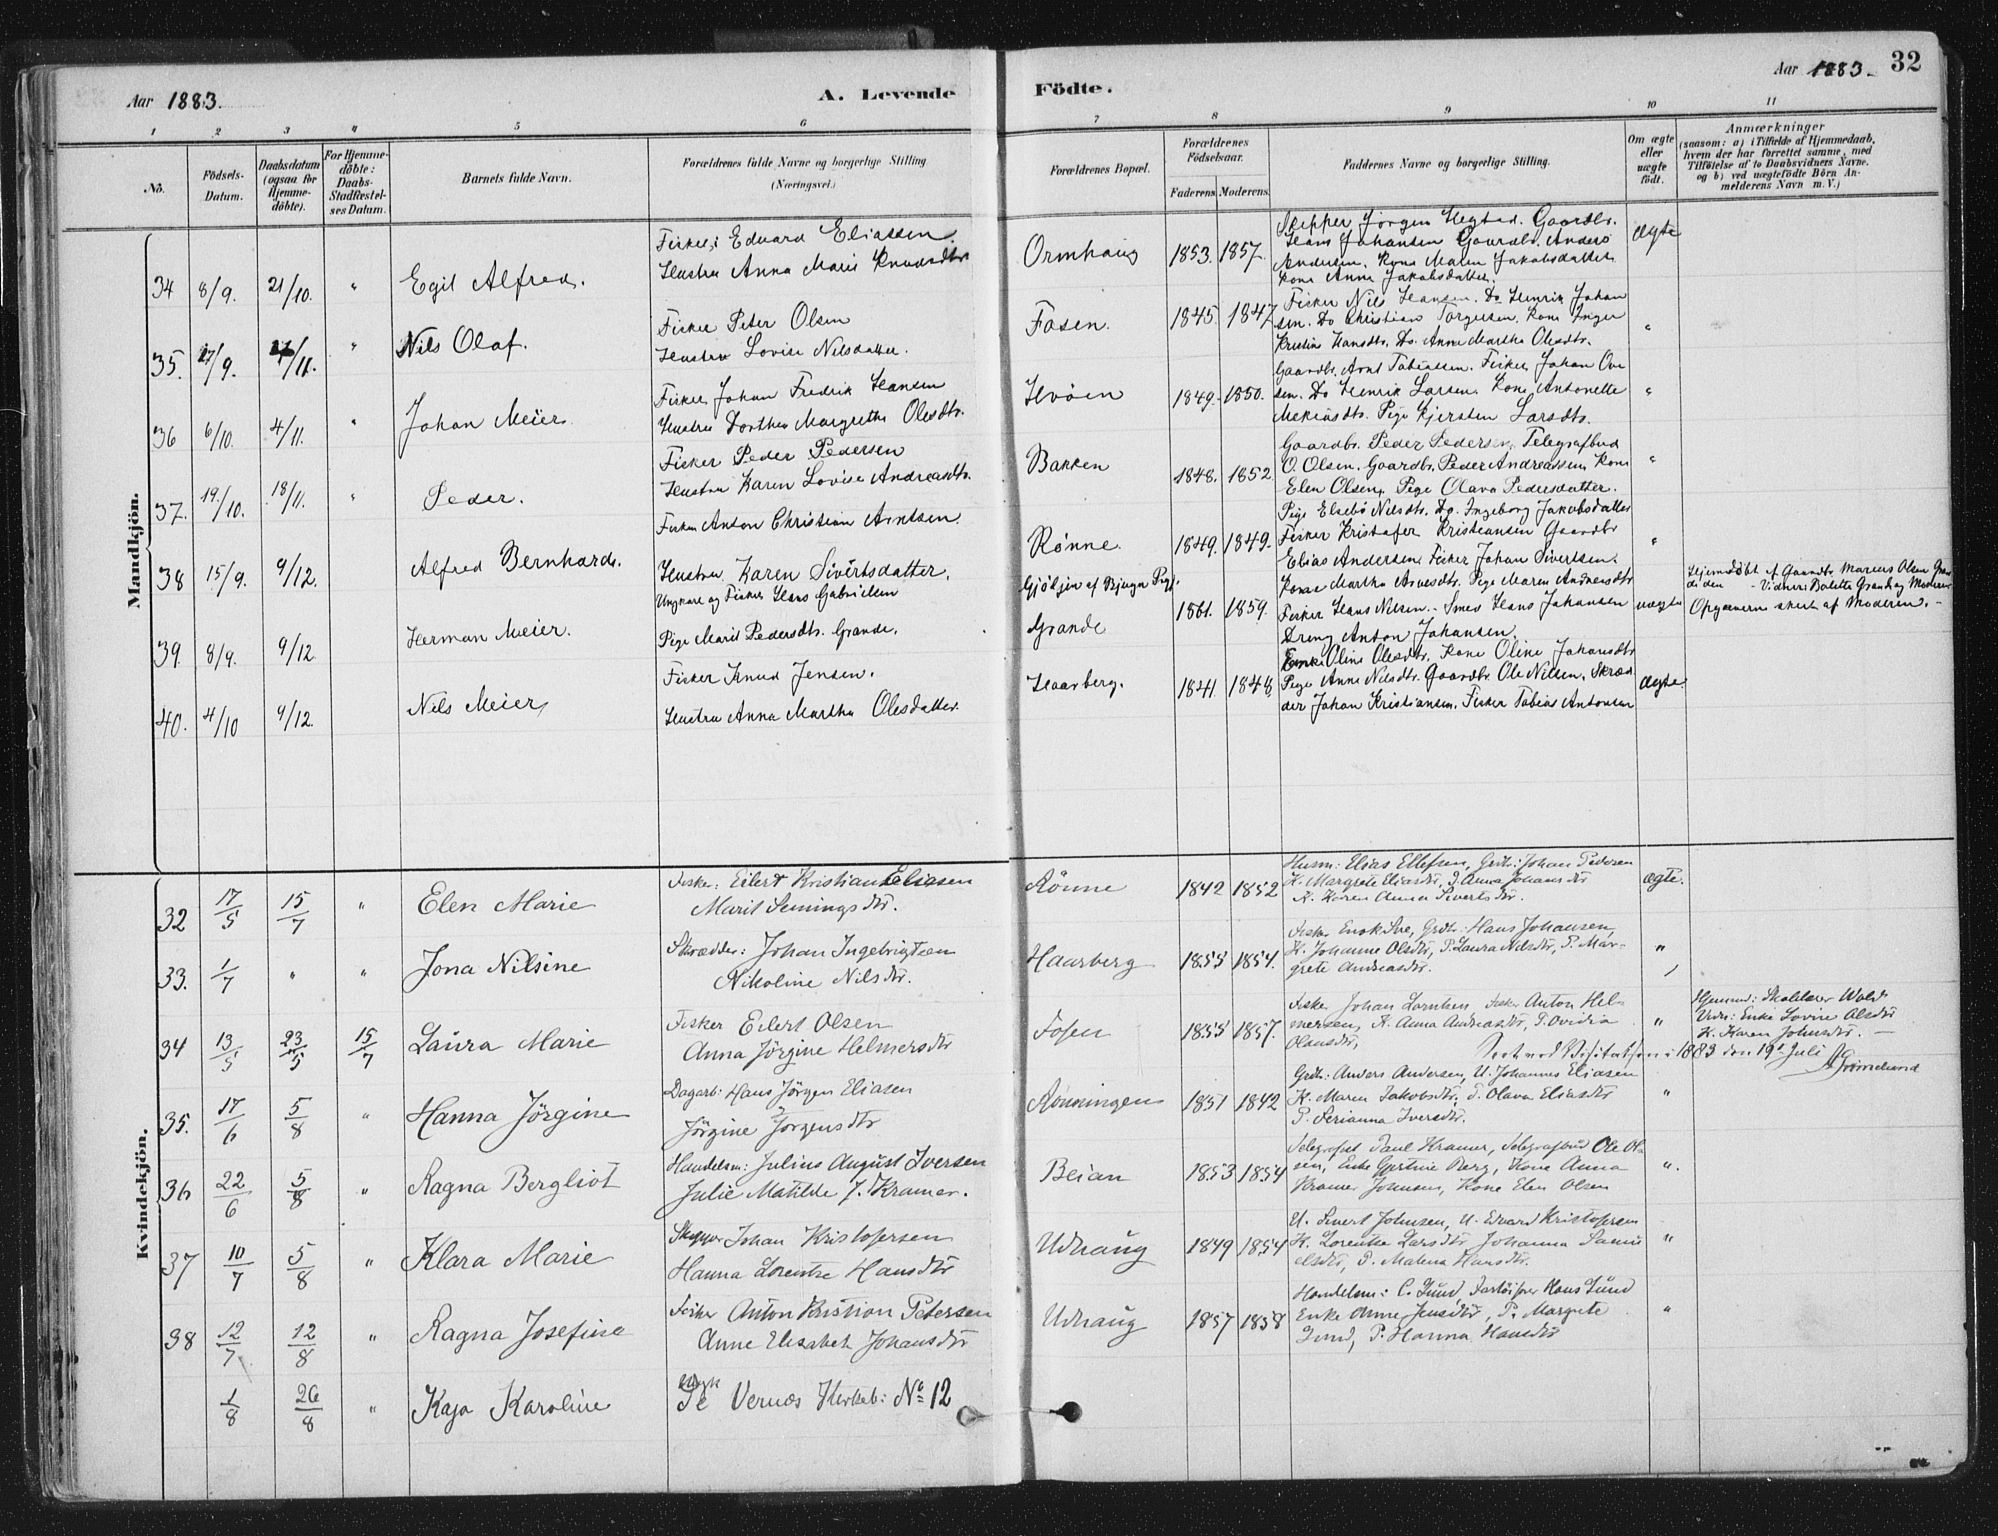 Aar 1883.
A. Levende Födte.
Aar 1883. 32
1 2 3 4 5 6 7 8 9 10 11
No.
Födsels-Datum.
Daabsdatum (ogsaa for Hjemme-döbte).
For Hjemme-döbte: Daabs-Stadfæstel-ses Datum.
Barnets fulde Navn.
Forældrenes fulde Navne og borgerlige Stilling (Næringsvei.)
Forældrenes Bopæl.
Forældrenes Födselsaar.
Faderens. Moderens.
Faddernes Navne og borgerlige Stilling.
Om ægte eller uægte født.
Anmærkninger
(saasom: a) i Tilfælde af Hjemmedaab, hvem der har forrettet samme, med Tilföielse af to Daabsvidners Navne. og b) ved uægtefödte Börn An-melderens Navn m.V.)
Mandkjön.
34 8/9. 21/10. " Egil Alfred.
Fisker Edvard Eliassen.
Hustru Anna Marie Knudsdtr
Ormhaug 1853. 1857.
Skipper Jörgen Hegstad. Gaardbr.
Hans Johansen Gaardbr. Anders
Andersen. Kone Maren Jakobsdatter
Kone Anne Jakobsdatter.
Ægte
35. 27/9. 4/11. " Nils Olaf.
Fisker Peter Olsen
Hustru Lovise Nilsdatter.
Fosen. 1845. 1847
Fisker Nils Hansen. Do Henrik Johan
sen. Do Christian Torgersen. Kone Inger
Kristine Hansdtr. Do. Anne Martha Olesdtr.
"
36 6/10. 4/11. " Johan Meier
Fisker Johan Fredrik Hansen
Hustru Dorthea Margretha Olesdtr.
Hvöen 1849. 1850.
Gaardbr. Arnt Tobiassen. Fisker Johan Ove
sen. Do Henrik Larsen. Kone Antonette
Mekiasdtr. Pige Kjersten Larsdtr.
"
37. 19/10. 18/11. " Peder.
Fisker Peder Pedersen
Hustru Karen Lovise Andreasdtr.
Bakken 1848. 1852.
Gaardbr. Peder Pedersen, Telegrafbud
O. Olsen. Gaardbr. Peder Andreassen, Kone
Elen Olsen, Pige Olava Pedersdatter.
"
38 15/9. 9/12. Alfred Bernhard.
Fisker Anton Christian Arntsen.
Hustru Karen Sivertsdatter.
Rönne. 1849. 1849.
Pige Elsebö Nilsdtr. Do. Ingeborg Jakobsdatter
Fisker Kristofer Kristiansen Gaardbr
Elias Andersen Fisker Johan Sivertsen.
"
39. 8/9. 9/12 Herman Meier.
Ungkarl og Fisker Hans Gabrielsen
Pige Marit Pedersdtr. Grande.
Gjöljen af Bjugn Pgj.
Grande 1861. 1859.
Kone Martha Arnesdtr. Pige Maren Andreasdtr
Fisker Hans Nilsen. Smed Hans Johansen
Dreng Anton Johansen.
uægte
Hjemmedöbt af Gaardbr. Marius Olsen Gran
de den - Vidner: Bolette Grande og Moderen
Opgaverne skeet af Moderen. -
40. 4/10 9/12. Nils Meier
Fisker Knud Jensen.
Hustru Anna Martha Olesdatter.
Haarberg. 1841. 1848
Enke Oline Olesdtr. Kone Oline Johansdtr
Pige Anne Nilsdtr. Gaardbr. Ole Nilsen, Skræd
der Johan Kristiansen. Fisker Tobias Antonsen
Ægte.
Kvindekjön.
32 17/5 15/7 " Elen Marie
Fisker: Eilert Kristian Eliasen
Marit Semingsdtr.
Rönne 1842 1852
Husm: Elias Ellefsen, Grdb: Johan Pedersen
K. Margrete Eliasdtr, P. Anna Johansdtr
K. Karen Anna Sivertsdtr.
ægte.
33. 1/7 " " Jona Nilsine
Skrædder: Johan Ingebrigtsen
Nikoline Nilsdtr.
Haarberg 1855 1854.
Fisker Enok Ive, Grdb: Hans Johansen,
K. Johanne Olsdtr, P. Laura Nilsdtr, P. Mar-
grete Andreasdtr.
"
34 13/5 23/5 15/7 Laura Marie
Fisker Eilert Olsen
Anna Jörgine Helmersdtr
Fosen 1855 1857.
Fisker Johan Lorntsen Fisker Anton Hel-
mersen, K. Anna Andreasdtr, P. Ovidia
Olausdtr,
"
Hjemmed: Skolelærer Wold
Vidn: Enke Lovise Olsdtr
K. Karen Johnsdtr. -
Seet ved Visitatsen i 1883 den 19de Juli
35. 17/6 5/8 " Hanna Jörgine
Dagarb: Hans Jörgen Eliasen
Jörgine Jörgensdtr
Rönningen 1851 1842
Grdb: Anders Andersen, U. Johannes Eliasen
K. Maren Jakobsdtr, P. Olava Eliasdtr
P. Serianna Iversdtr.
"
36 22/6 5/8 " Ragna Bergliot
Handelsm: Julius August Iversen
Julie Matilde J. Kramer.
Beian 1853 1854
Telegrafist Paul Kramer, Telegrafbud Ole Ol-
sen, Enke Gjertine Berg, Kone Anna
Kramer Johnsen, Kone Elen Olsen
"
37 10/7 5/8 " Klara Marie
Skipper Johan Kristofersen
Hanna Lorentze Hansdtr
Udhaug 1849 1854
U. Sivert Johnsen, U. Edvard Kristofersen
K. Lorentze Larsdtr Johanna Samu
elsdtr, P. Malena Hansdtr.
"
38 12/7 12/8 " Ragna Josefine
Fisker Anton Kristian Petersen
Anne Elisabeth Johansdtr
Udhaug 1857 1858
Handelsm: C. Lund Partöifører Hans Lund
Enke Anne Jensdtr, P. Margrete
Lund, P. Hanna Hansdtr
"
1/8 26/8 " Kaja Karoline
Se Vernes Kirkeb: No 12